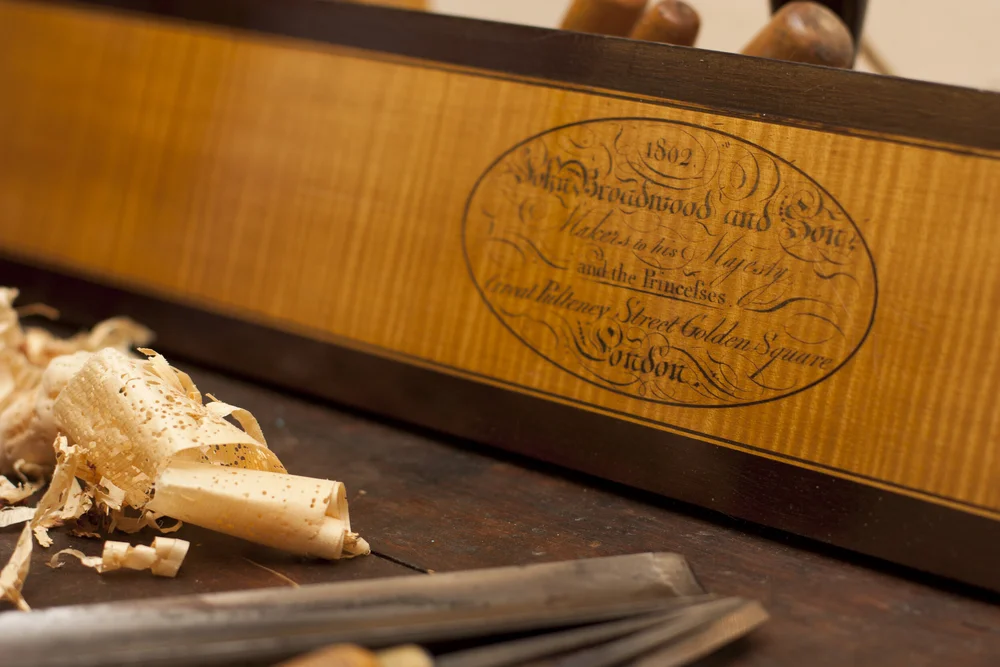 1802.
John Broadwood and Son.
Makers to his Majesty
and the Princeſses.
Great Pulteney Street Golden Square
London.